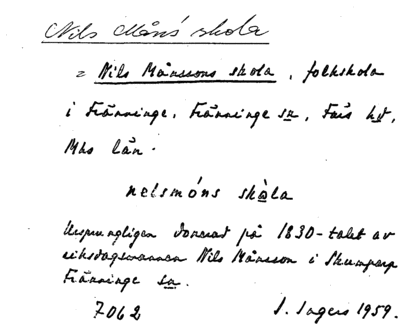 Nils Måns skola
= Nils Månssons skola, folkskola
i Fränninge, Fränninge sn, Färs hd,
Mhs län.
nelsmóns skὰla
Ursprungligen donerad på 1830-talet av
riksdagsmannen Nils Månsson i Skumparp
Fränninge sn.
7062 S. Ingers 1959.